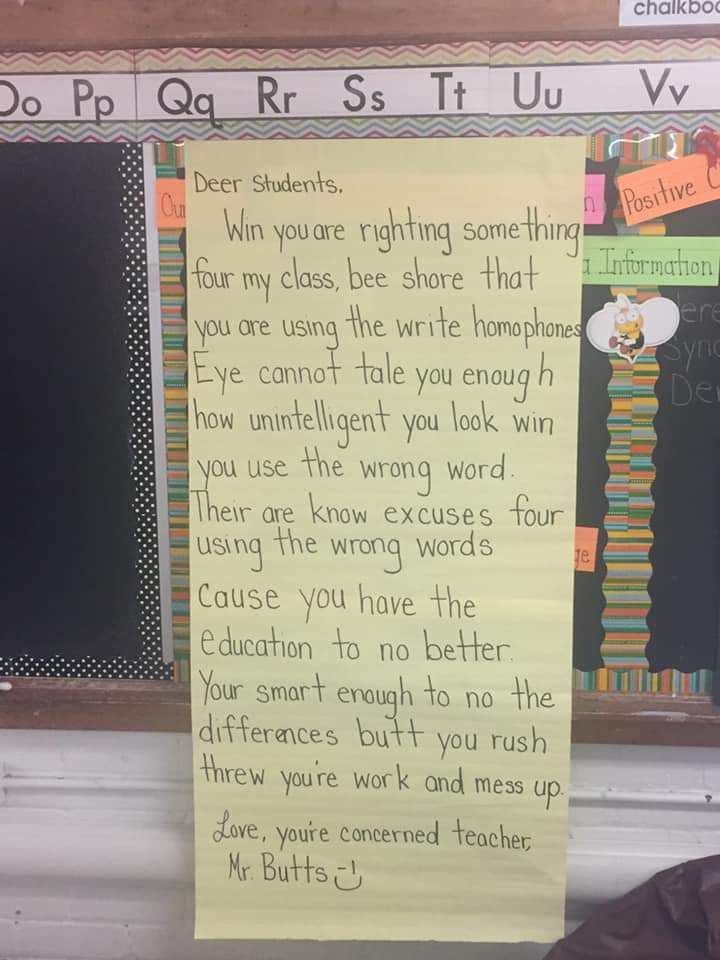 chalkboa
Oo Pp Qq Rr Ss Tt Uu Vv
Deer Students,
Win you are righting something
four my class, bee shore that
you are using the write homophones
Eye cannot tale you enough
how unintelligent you look win
you use the wrong word.
Their are know excuses four
using the wrong words
Cause you have the
education to no better.
Your smart enough to no the
differences butt you rush
threw you're work and mess up.
Love, you're concerned teacher,
Mr. Butts
Positive C
Information